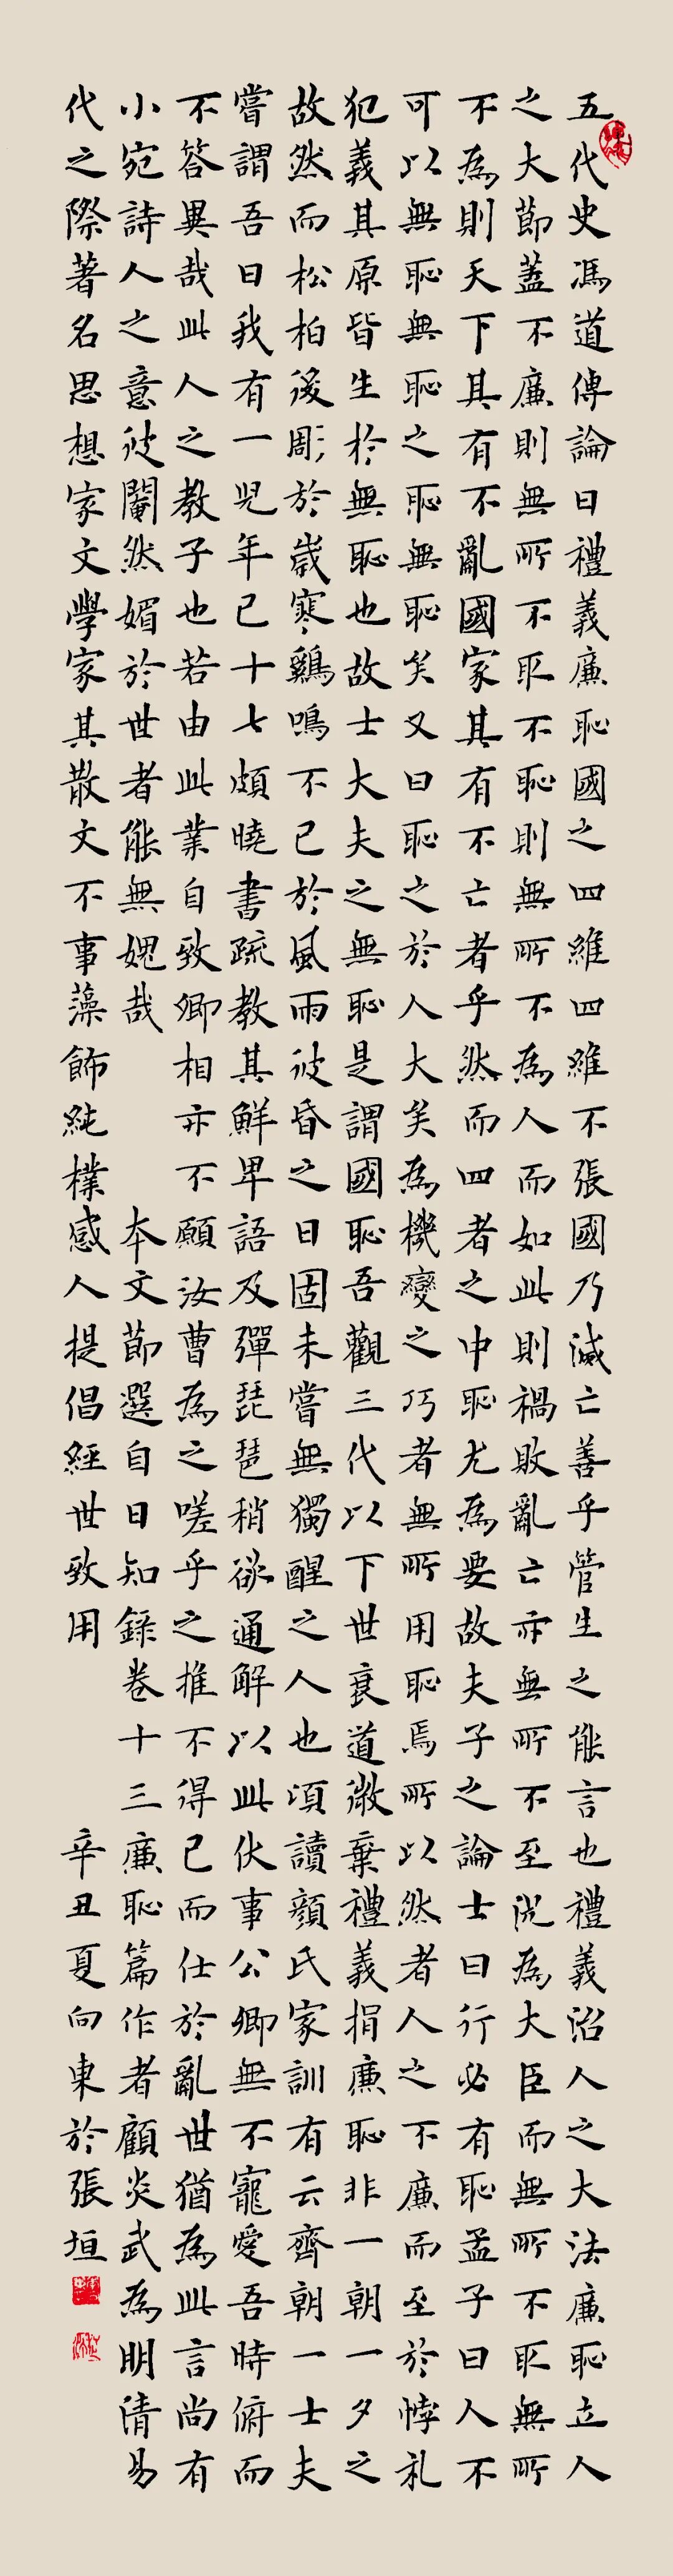 五代史馮道傳論曰禮義廉恥國之四維四維不張國乃滅亡善乎管生之能言也禮義治人之大法廉恥立人
之大節蓋不廉則無所不取不恥則無所不為人而如此則禍敗亂亡亦無所不至況為大臣而無所不取無所
不為則天下其有不亂國家其有不亡者乎然而四者之中恥尤為要故夫子之論士曰行必有恥孟子曰人不
可以無恥無恥之恥無恥矣又曰恥之於人大矣為機變之巧者無所用恥焉所以然者人之不廉而至於悖礼
犯義其原皆生於無恥也故士大夫之無恥是謂國恥吾觀三代以下世衰道微棄禮義捐廉恥非一朝一夕之
故然而松柏後彫於歲寒鷄鳴不已於風雨彼昏之日固未嘗無獨醒之人也頃讀顏氏家訓有云齊朝一士夫
嘗謂吾曰我有一児年已十七頗曉書疏教其鮮卑語及彈琵琶稍欲通解以此伏事公卿無不寵愛吾時俯而
不答異哉此人之教子也若由此業自致卿相亦不願汝曹為之嗟乎之推不得已而仕於亂世猶為此言尚有
小宛詩人之意彼閹然媚於世者能無媿哉
本文節選自日知錄卷十三廉恥篇作者顧炎武為明清易
代之際著名思想家文學家其散文不事藻飾純樸感人提倡經世致用
辛丑夏向東於張垣